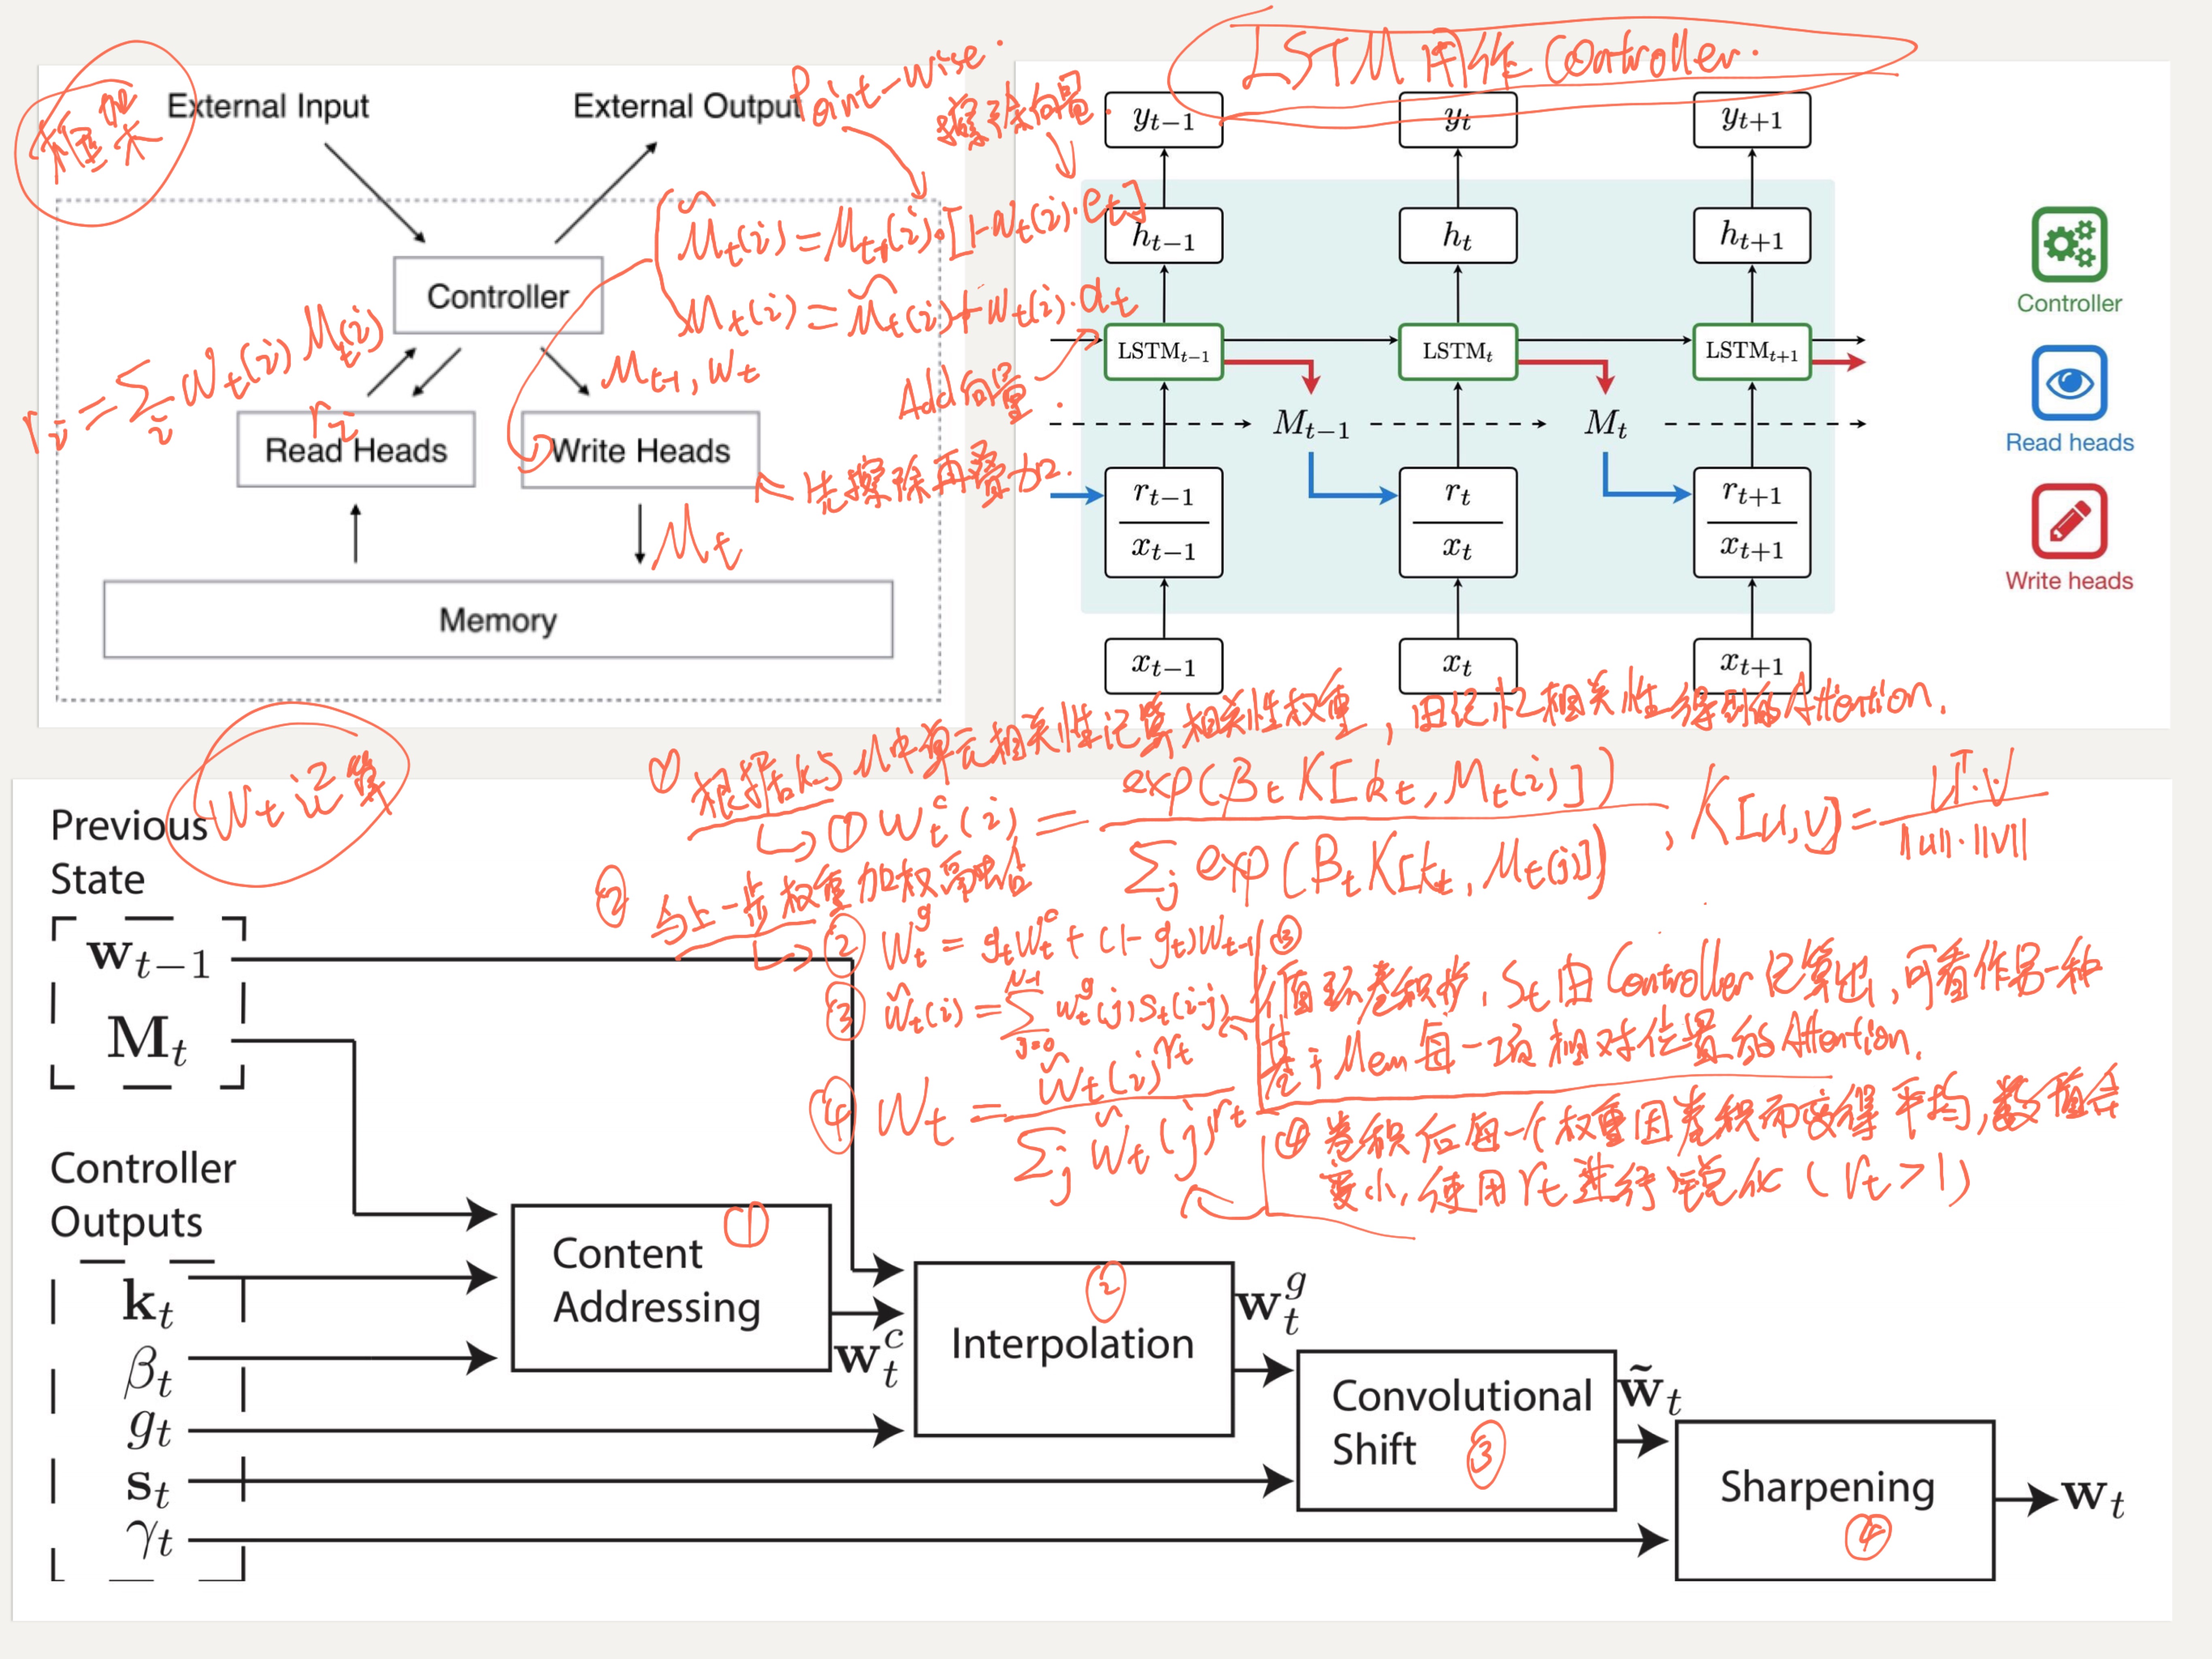 框架
External Input
External Output
Point-wise.
擦除向量.
M̃t(i) = Mt-1(i)∘[1-wt(i)·et]
Mt(i) = M̃t(i) + wt(i)·at
Controller
ri = Σi wt(i) Mt(i)
Mt-1, wt
Add向量.
ri
Read Heads
Write Heads
先擦除再叠加.
Mt
Memory
LSTM 用作 Controller.
yt−1
yt
yt+1
ht−1
ht
ht+1
LSTMt−1
LSTMt
LSTMt+1
Mt−1
Mt
rt−1
rt
rt+1
xt−1
xt
xt+1
xt−1
xt
xt+1
Controller
Read heads
Write heads
Wt 计算
① 根据k与M中单元相关性计算相关性权重，由记忆相关性得到的Attention.
① wtc(i) = exp(βt K[kt, Mt(i)]) / Σj exp(βt K[kt, Mt(j)]) , K[u,v] = uT·v / ||u||·||v||
② 与上一步权重加权
② wtg = gt wtc + (1-gt) wt-1
③ w̃t(i) = Σj=0N-1 wtg(j) st(i-j)
③ 循环卷积步, St 由 Controller 计算出, 可看作另一种
基于Mem每一项相对位置的Attention.
④ wt = w̃t(i)rt / Σj w̃t(j)rt
④ 卷积后每一个权重因卷积而变得平均, 数值会
变小, 使用rt进行锐化 (rt>1)
Previous
State
wt−1
Mt
Controller
Outputs
kt
βt
gt
st
γt
Content
Addressing
①
wtc
②
Interpolation
wtg
Convolutional
Shift
③
w̃t
Sharpening
④
wt